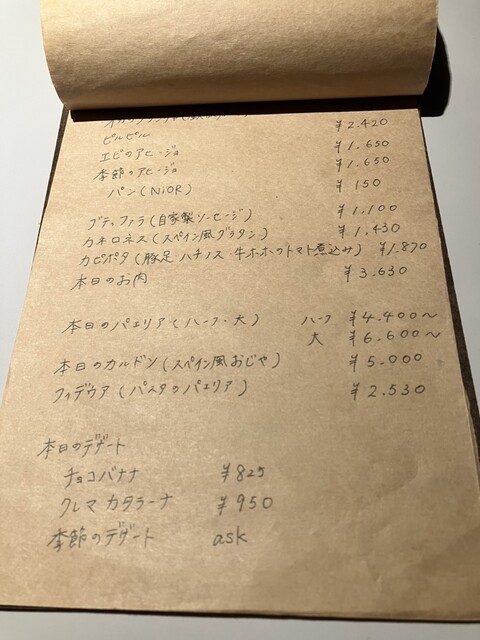 ピルピル ¥2.420
エビのアヒージョ ¥1.650
季節のアヒージョ ¥1.650
パン(NiOR) ¥150
ブティファラ(自家製ソーセージ) ¥1.100
カネロネス(スペイン風グラタン) ¥1.430
カピポタ(豚足 ハチノス 牛ホホのトマト煮込み) ¥1.870
本日のお肉 ¥3.630
本日のパエリア(ハーフ・大) ハーフ ¥4.400〜
大 ¥6.600〜
本日のカルドソ(スペイン風おじや) ¥5.000
フィデウア(パスタのパエリア) ¥2.530
本日のデザート
チョコバナナ ¥825
クレマカタラーナ ¥950
季節のデザート ask